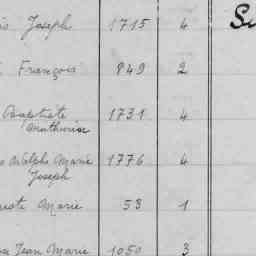 Joseph 1715 4 Su
François 849 2
Baptiste 1731 4
Mathurin
Adolphe Marie 1776 4
Joseph
Marie 53 1
Jean Marie 1050 3